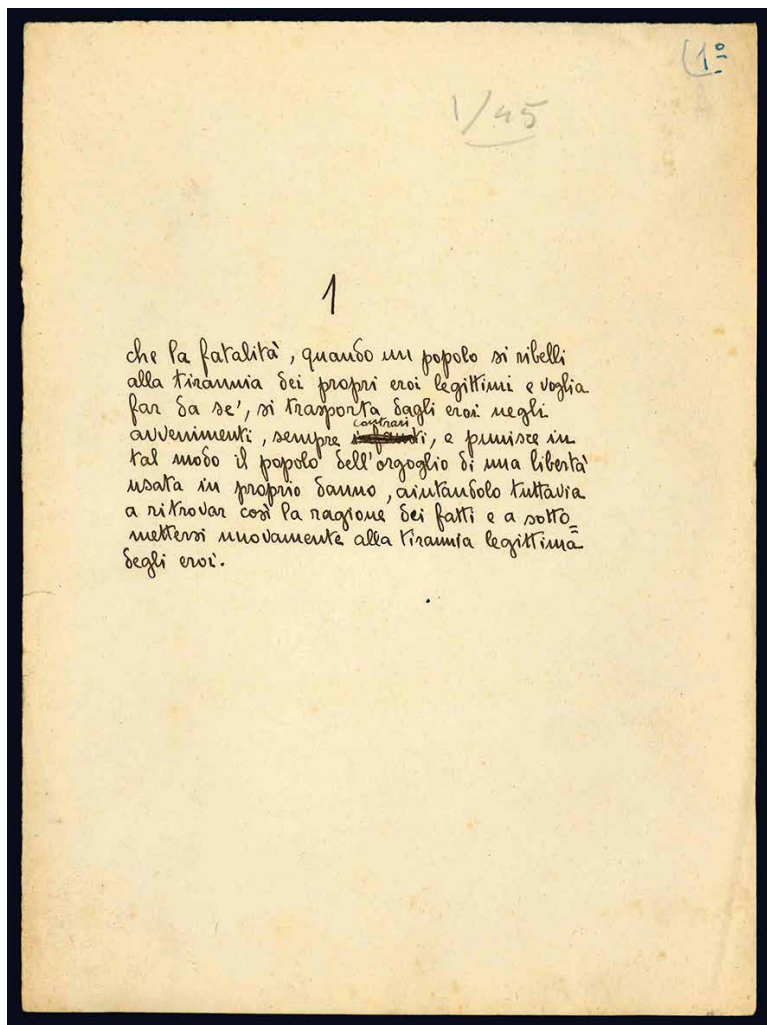 (1º
1/45
1
che la fatalità, quando un popolo si ribelli
alla tirannia dei propri eroi legittimi e voglia
far da se', si trasporta dagli eroi negli
contrari
avvenimenti, sempre infausti, e punisce in
tal modo il popolo dell'orgoglio di una libertà
usata in proprio danno, aiutandolo tuttavia
a ritrovar così la ragione dei fatti e a sotto=
mettersi nuovamente alla tirannia legittima
degli eroi.